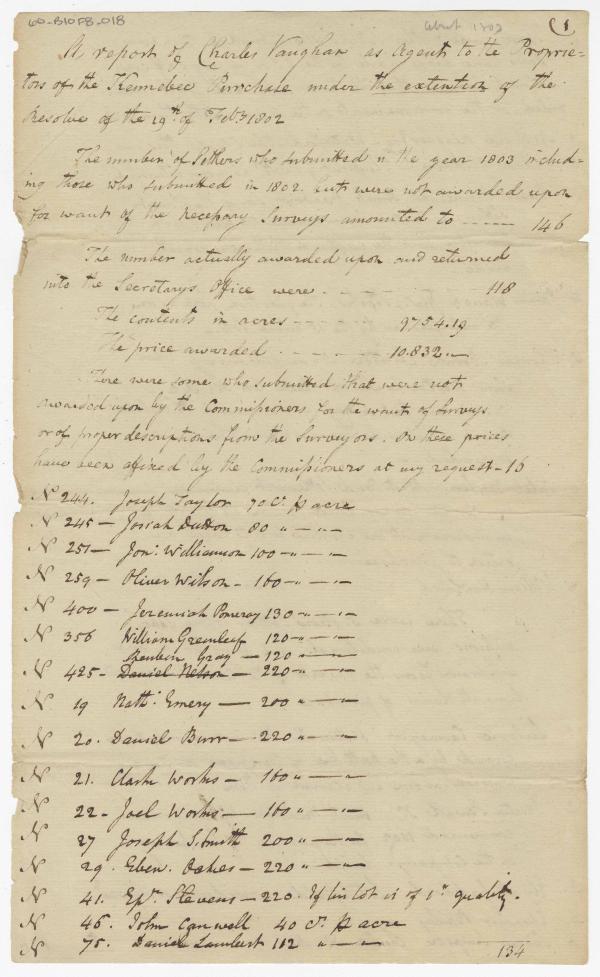 60-B10F8-018
about 1803
1
A report of Charles Vaughan as Agent to the Proprie=
tors of the Kennebec Purchase under the extention of the
Resolve of the 19th of Feby 1802
The number of Settlers who submitted in the year 1803 includ-
ing those who submitted in 1802 but were not awarded upon
for want of the necessary Surveys amounted to ----- 146
The number actually awarded upon and returned
into the Secretarys Office were - - - - - 118
The contents in acres - - - - - 9754.19
The price awarded - - - - - 10.832.—
There were some who submitted that were not
awarded upon by the Commissioners for the want of Surveys
or of proper descriptions from the Surveyors. On these prices
have been affixed by the Commissioners at my request - 16
No 244. Joseph Taylor 70 Cs p acre
No 245 — Josiah Dutton 80 " — " —
No 251 — Jons Williamson 100 — " — " —
No 259 — Oliver Wilson — 160 — " — " —
No 400 — Jeremiah Pomeroy 130 " — " —
No 356 William Greenleaf 120 — " — " —
Reuben Gray — 120 — " — " —
No 425 - Daniel Nelson — 220 — " — " —
No 19 Nathl Emery — 200 " — " —
No 20. Daniel Burr — 220 " — " —
No 21. Clark Works — 160 " — " —
No 22 - Joel Works — 160 " — " —
No 27 Joseph S. Smith 200 " — " —
No 29. Eben. Oakes — 220 " — " —
No 41. Epm Stevens — 220. If his lot is of 1st quality.
No 46. John Canwell 40 Cs p acre
No 75. Daniel Lambert 112 " — " —
134